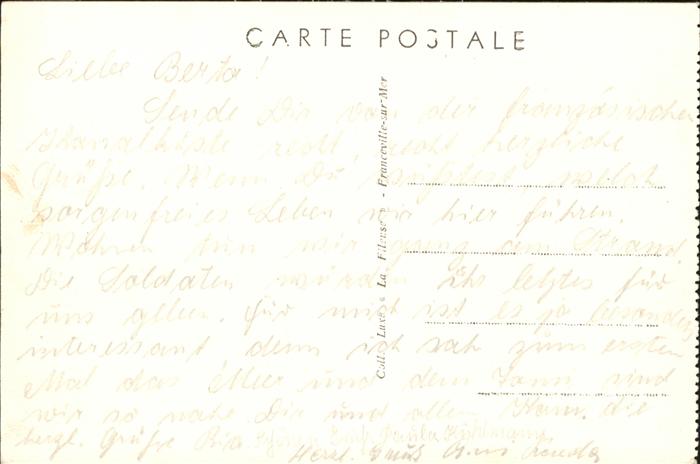 CARTE POSTALE
Liebe Berta!
Sende Dir von der französischen
Kanalküste recht, recht herzliche
Grüße. Wenn Du wüßtest, welch
sorgenfreies Leben wir hier führen.
Wohnen tun wir ganz am Strand.
Die Soldaten würden ihr letztes für
uns geben. Für mich ist es ja besonders
interessant, denn ich sah zum ersten
Mal das Meer und dem Tommi sind
wir so nahe. Dir und allen, die
herzl. Grüße
Herzl. Gruß
- Franceville-sur-Mer